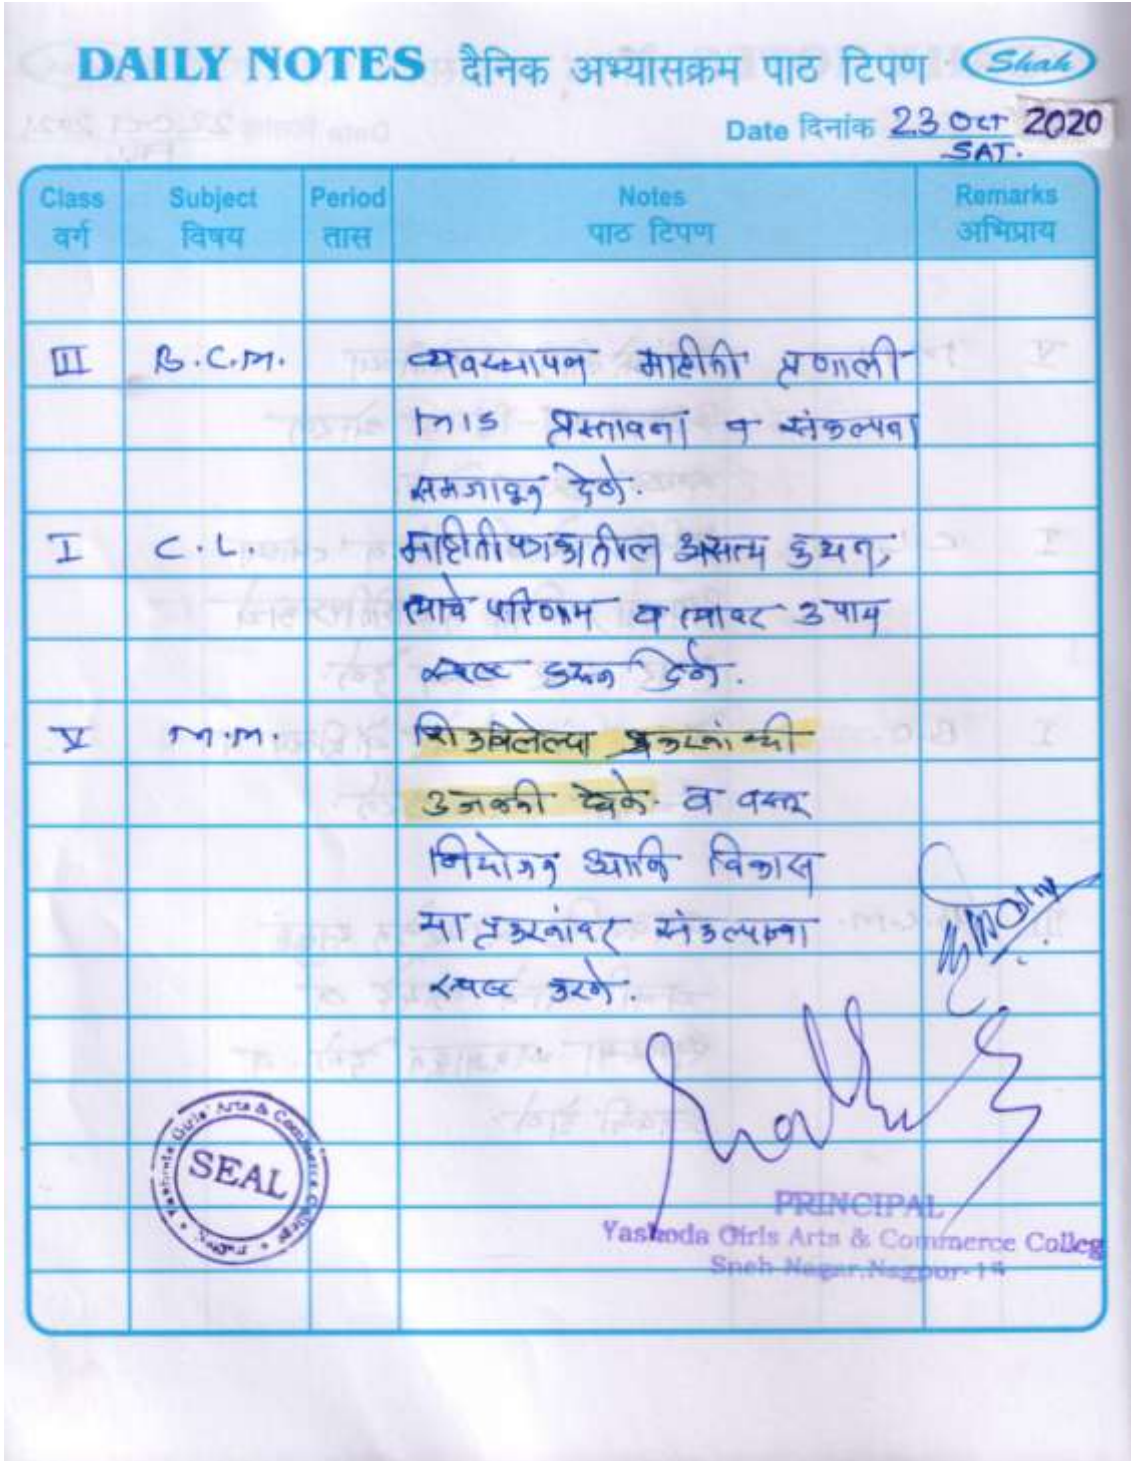 DAILY NOTES दैनिक अभ्यासक्रम पाठ टिपण Shah
Date दिनांक 23 OCT 2020
SAT.
Class Subject Period Notes Remarks
वर्ग विषय तास पाठ टिपण अभिप्राय
III B.C.M. व्यवस्थापन माहीती प्रणाली
MIS प्रस्तावना व संकल्पना
समजावून देणे.
I C.L. माहीतीपत्रकातील असत्य कथन,
त्याचे परिणाम व त्यावर उपाय
स्पष्ट करून देणे.
V M.M. शिकविलेल्या प्रकरनांची
उजळणी घेणे. व वस्तू
नियोजन आणि विकास
या प्रकरनांवर संकल्पना
स्पष्ट करने.
Yashoda Girls' Arts & Commerce College
SEAL
PRINCIPAL
Yashoda Girls Arts & Commerce Colleg
Sneh Nagar, Nagpur-15